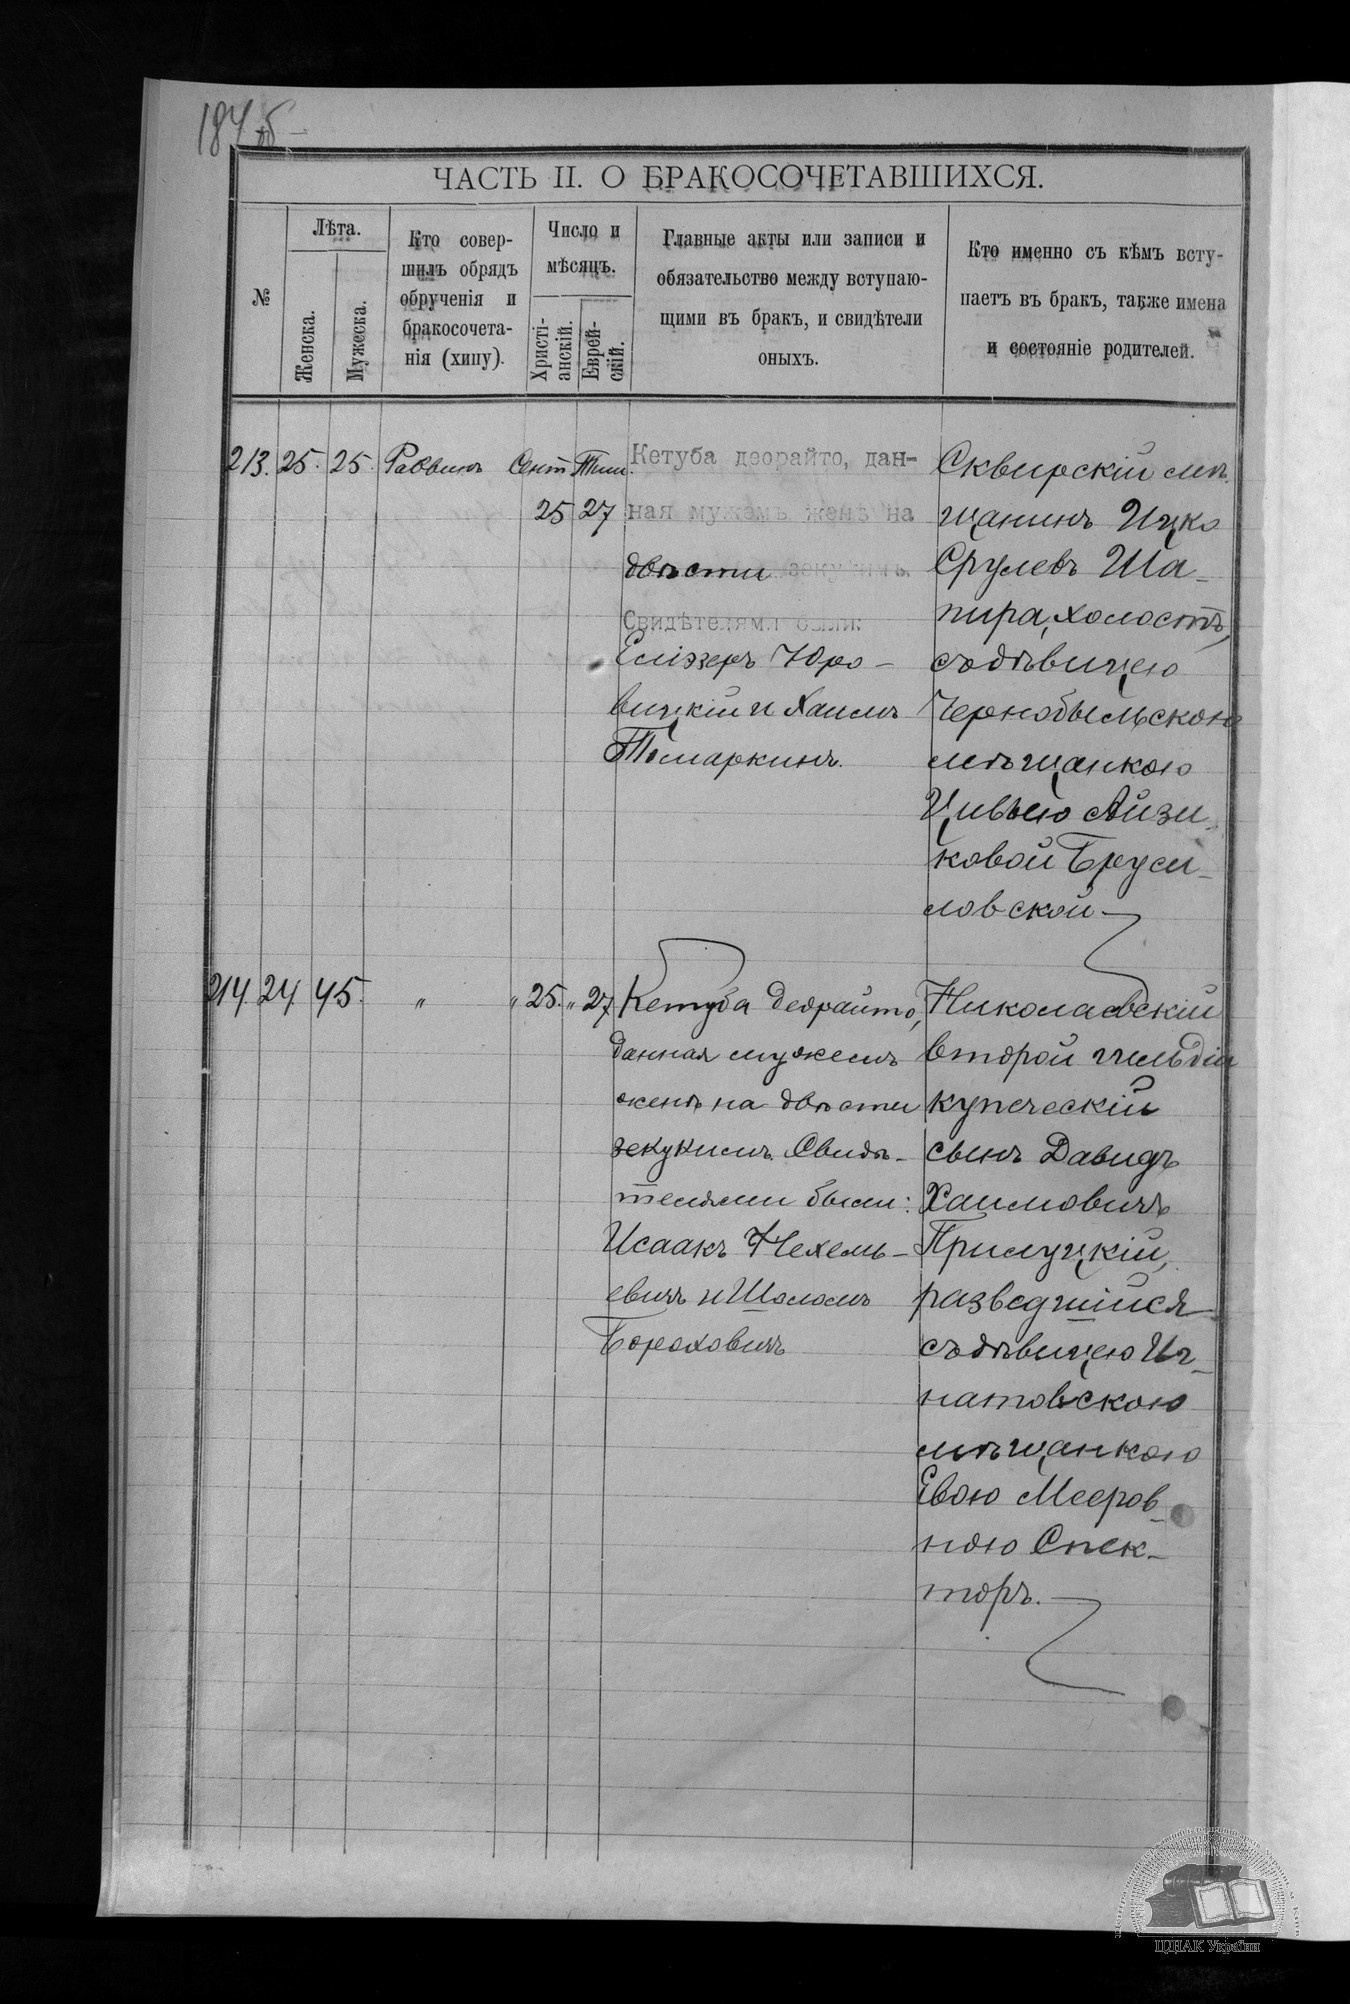 ЧАСТЬ II. О БРАКОСОЧЕТАВШИХСЯ.
№
Лѣта.
Женска.
Мужеска.
Кто совер-
шилъ обрядъ
обрученія и
бракосочета-
нія (хипу).
Число и
мѣсяцъ.
Христі-
анскій.
Еврей-
скій.
Главные акты или записи и
обязательство между вступаю-
щими въ бракъ, и свидѣтели
оныхъ.
Кто именно съ кѣмъ всту-
паетъ въ бракъ, также имена
и состояніе родителей.
213. 25. 25. Раввинъ Сент Тиш.
25 27
Кетуба деорайто, дан-
ная мужемъ женѣ на
двѣсти зекукимъ.
Свидѣтелями были:
Еліэзеръ Юро-
вицкій и Хаимъ
Томаркинъ.
Сквирскій мѣ-
щанинъ Ицко
Срулевъ Ша-
пира, холостъ,
съ дѣвицею
Чернобыльскою
мѣщанкою
Цивьею Айзи-
ковой Бруси-
ловской
214 24 45. " " 25. " 27
Кетуба деорайто,
данная мужемъ
женѣ на двѣсти
зекукимъ. Свидѣ-
телями были:
Исаакъ Нехель-
евичъ и Шоломъ
Бороховичъ
Николаевскій
второй гильдіи
купеческій
сынъ Давидъ
Хаимовичъ
Прилуцкій,
разведшійся
съ дѣвицею Иг-
натовскою
мѣщанкою
Евою Мееров-
ною Спек-
торъ.
ЦДІАК України